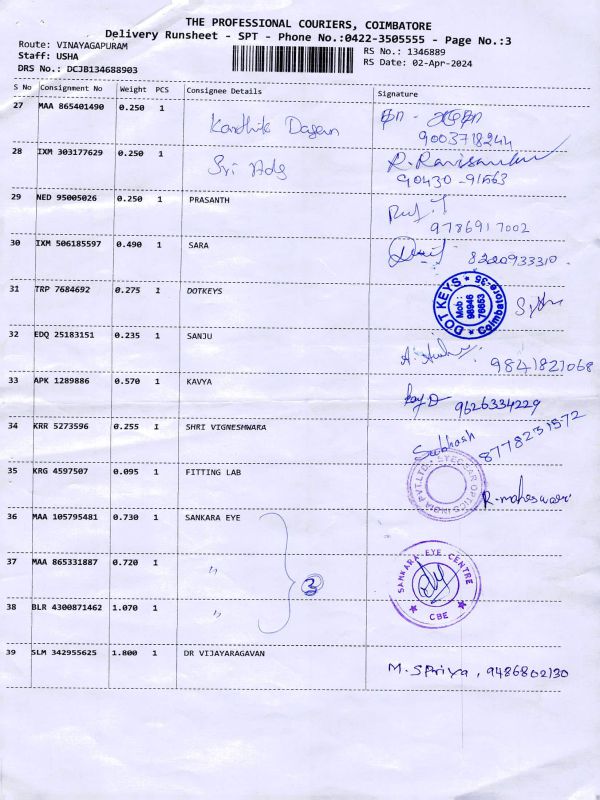 THE PROFESSIONAL COURIERS, COIMBATORE
Delivery Runsheet - SPT - Phone No.:0422-3505555 - Page No.:3
Route: VINAYAGAPURAM
RS No.: 1346889
Staff: USHA
RS Date: 02-Apr-2024
DRS No.: DCJB134688903
S No Consignment No Weight PCS Consignee Details Signature
27 MAA 865401490 0.250 1
9003718244
28 IXM 303177629 0.250 1 Sri Ads R. Ravisankar
90430-91563
29 NED 95005026 0.250 1 PRASANTH
9786917002
30 IXM 506185597 0.490 1 SARA 8220933310.
31 TRP 7684692 0.275 1 DOTKEYS
DOT KEYS * Coimbatore-35 *
Mob: 98946 76653
32 EDQ 25183151 0.235 1 SANJU
9841821068
33 APK 1289886 0.570 1 KAVYA
9626334229
34 KRR 5273596 0.255 1 SHRI VIGNESHWARA Subhash
8778231572
35 KRG 4597507 0.095 1 FITTING LAB
R. maheswari
36 MAA 105795481 0.730 1 SANKARA EYE
37 MAA 865331887 0.720 1 ,,
3
SANKARA EYE CENTRE
CBE
38 BLR 4300871462 1.070 1 ,,
39 SLM 342955625 1.800 1 DR VIJAYARAGAVAN M. S Priya, 9486802130